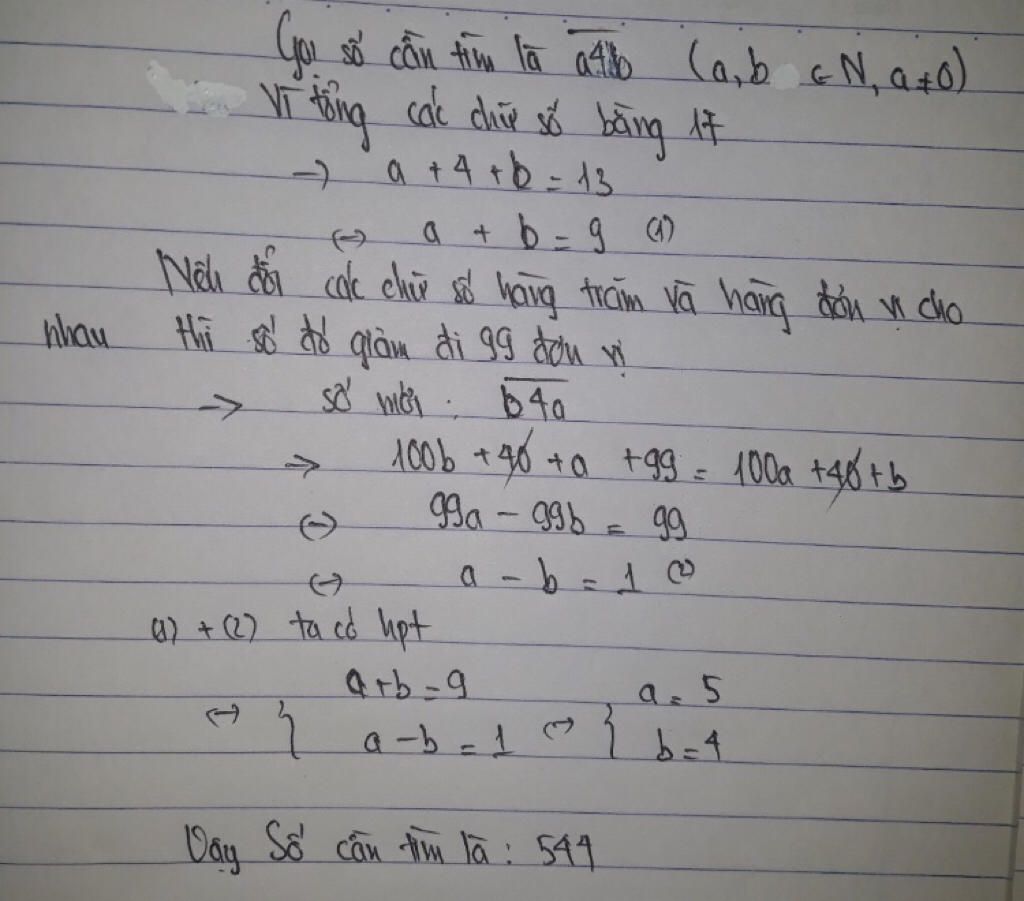 Gọi số cần tìm là a4b (a, b ∈ N, a ≠ 0)
Vì tổng các chữ số bằng 17
→ a + 4 + b = 13
↔ a + b = 9 (1)
Nếu đổi các chữ số hàng trăm và hàng đơn vị cho
nhau thì số đó giảm đi 99 đơn vị
→ số mới : b4a
→ 100b + 40 + a + 99 = 100a + 40 + b
↔ 99a - 99b = 99
↔ a - b = 1 (2)
(1) + (2) ta có hpt
↔ { a + b = 9 ↔ { a = 5
a - b = 1 b = 4
Vậy Số cần tìm là : 544